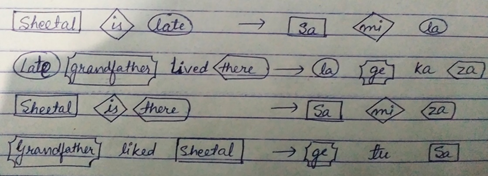 Sheetal is late → Sa mi la
Late grandfather lived there → la ge ka za
Sheetal is there → Sa mi za
Grandfather liked Sheetal → ge tu Sa